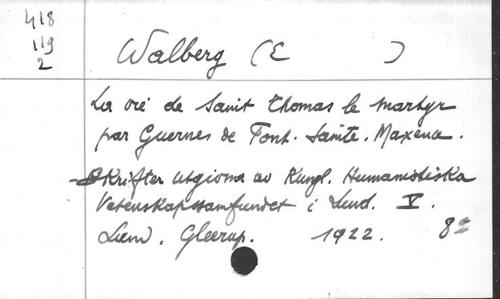 418
119
2
Walberg (E )
La vie de Saint Thomas le martyr
par Guernes de Pont. Sainte. Maxena.
- Skrifter utgivna av Kungl. Humanistiska
Vetenskapssamfundet i Lund. V.
Lund. Gleerup. 1922. 8º